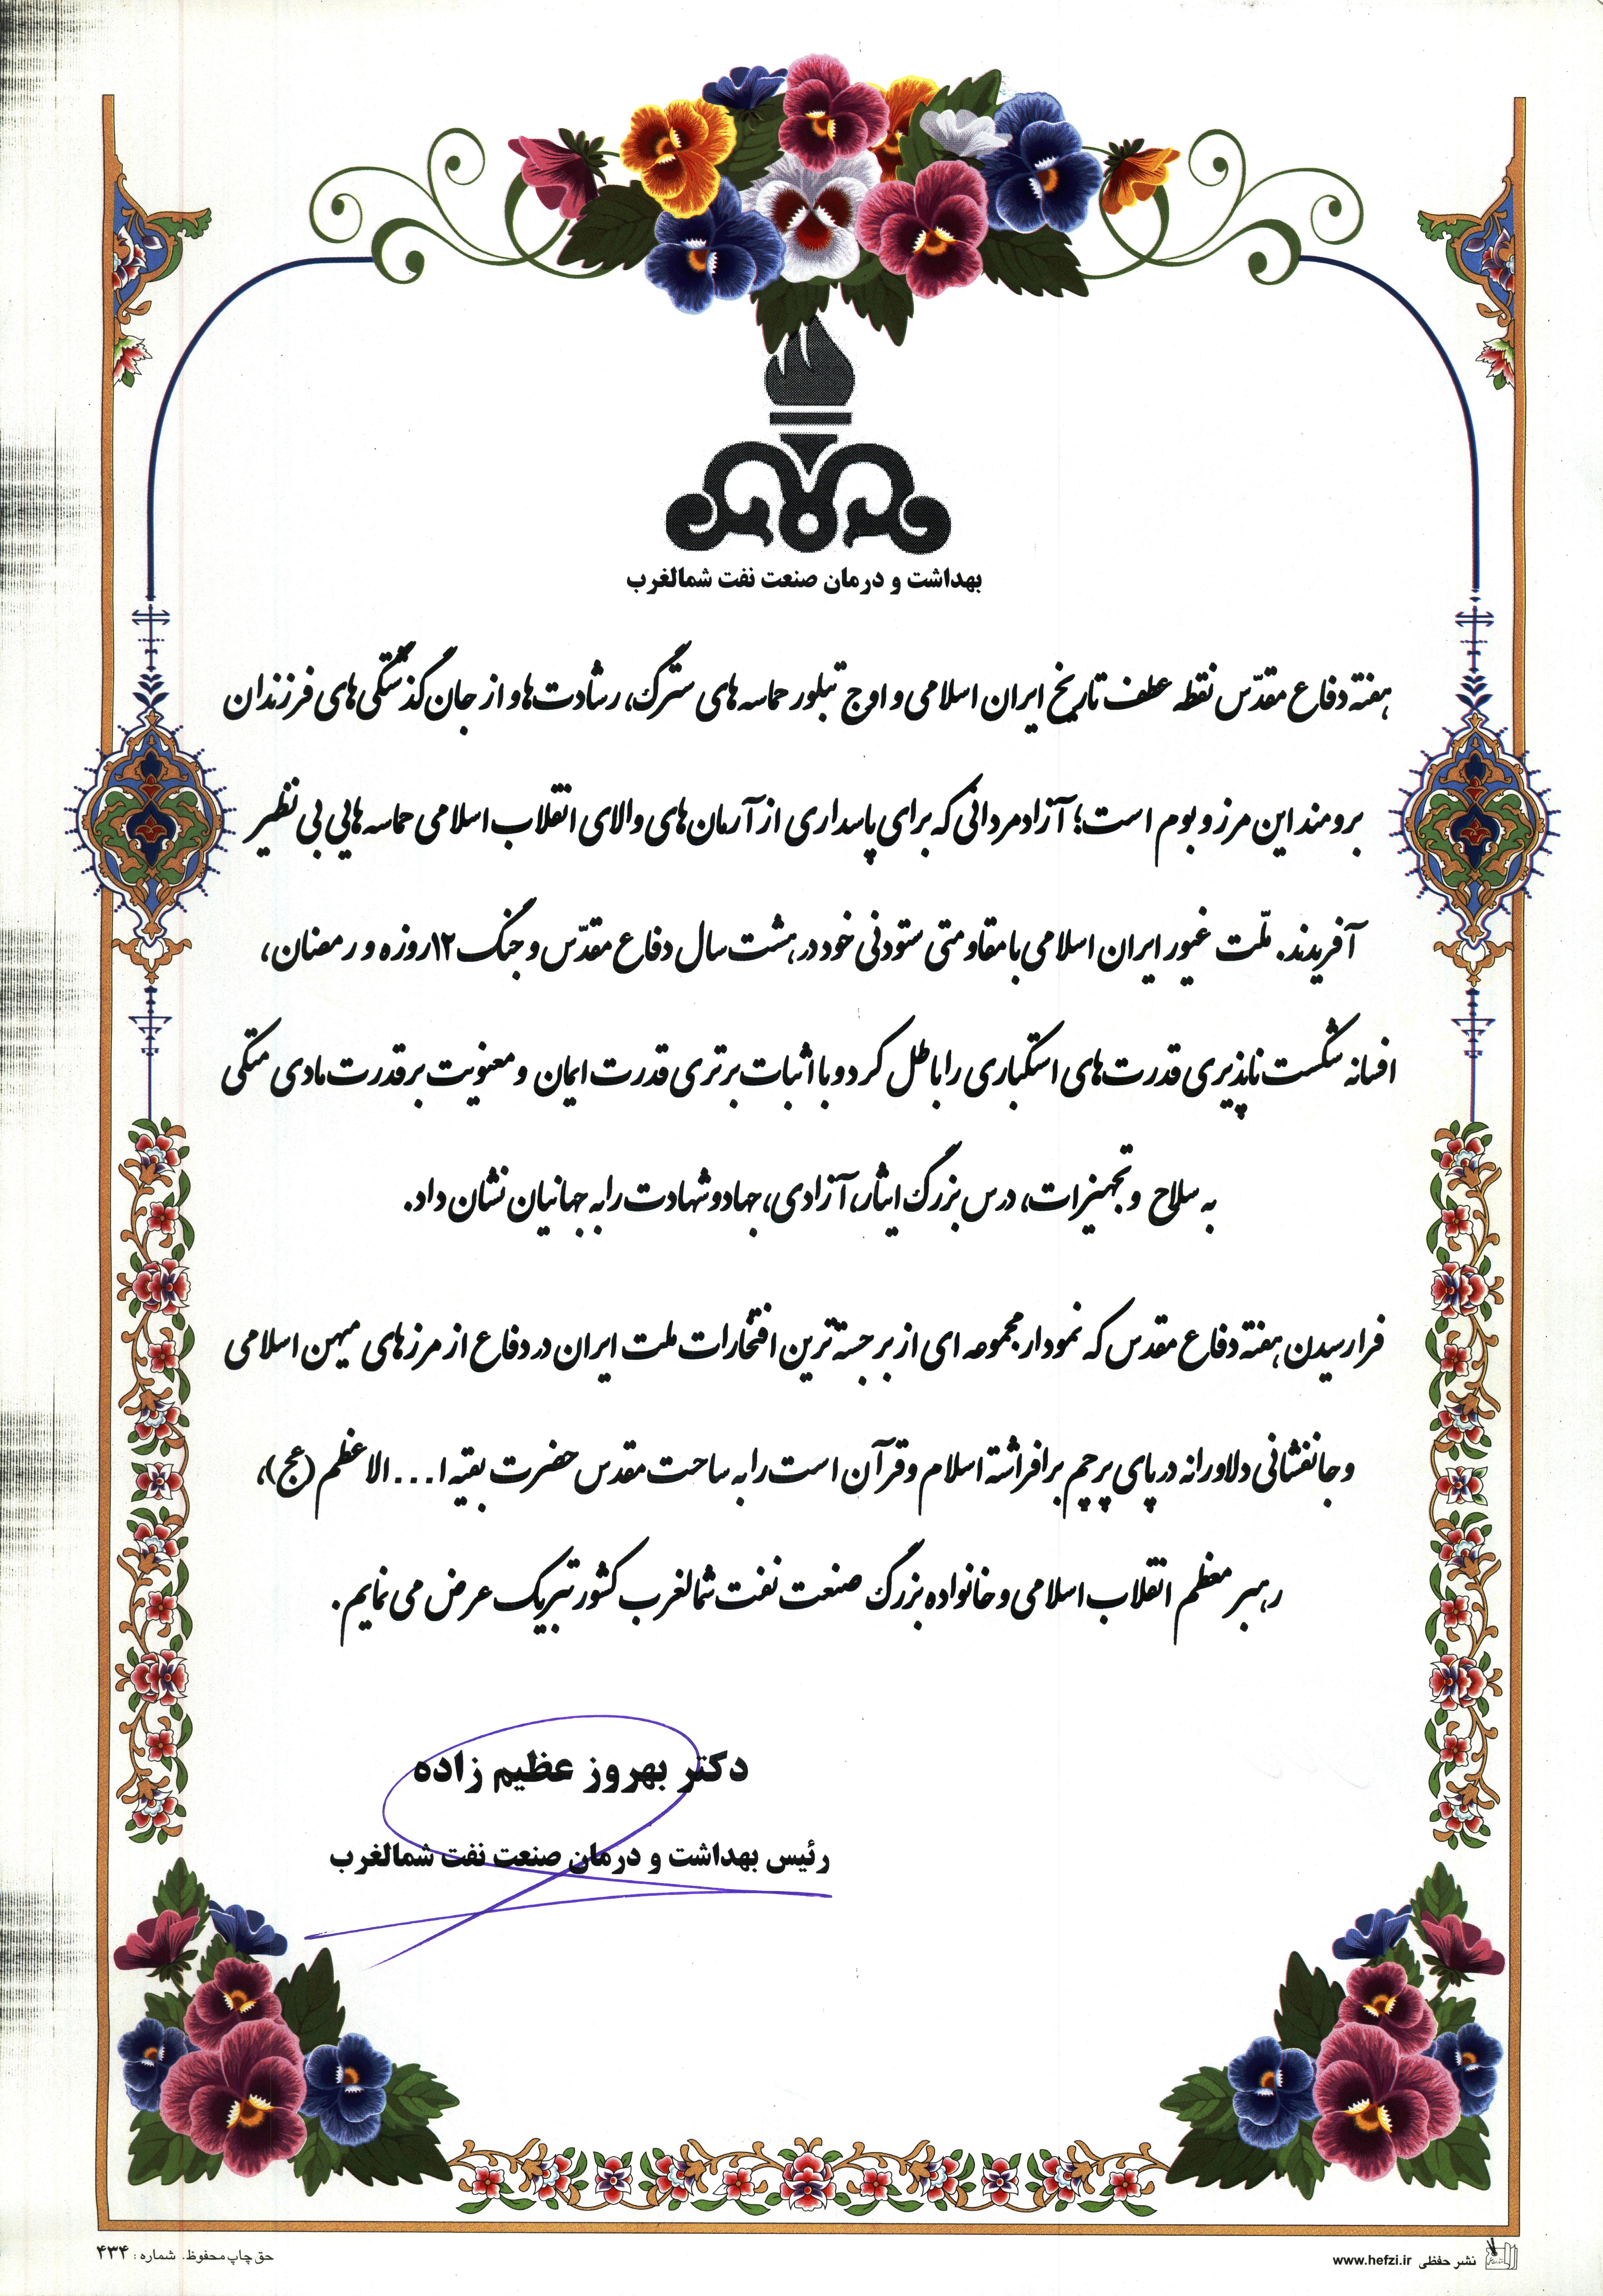 بهداشت و درمان صنعت نفت شمالغرب
هفته دفاع مقدّس نقطه عطف تاریخ ایران اسلامی و اوج تبلور حماسه های سترگ، رشادت ها و از جان گذشتگی های فرزندان
برومند این مرز و بوم است؛ آزادمردانی که برای پاسداری از آرمان های والای انقلاب اسلامی حماسه هایی بی نظیر
آفریدند. ملّت غیور ایران اسلامی با مقاومتی ستودنی خود در هشت سال دفاع مقدّس و جنگ ۱۲روزه و رمضان،
افسانه شکست ناپذیری قدرت های استکباری را باطل کرد و با اثبات برتری قدرت ایمان و معنویت بر قدرت مادی متکی
به سلاح و تجهیزات، درس بزرگ ایثار، آزادی، جهاد و شهادت را به جهانیان نشان داد.
فرا رسیدن هفته دفاع مقدس که نمودار مجموعه ای از برجسته ترین افتخارات ملت ایران در دفاع از مرزهای میهن اسلامی
و جانفشانی دلاورانه در پای پرچم برافراشته اسلام و قرآن است را به ساحت مقدس حضرت بقیه ا... الاعظم (عج)،
رهبر معظم انقلاب اسلامی و خانواده بزرگ صنعت نفت شمالغرب کشور تبریک عرض می نمایم.
دکتر بهروز عظیم زاده
رئیس بهداشت و درمان صنعت نفت شمالغرب
نشر حفظی www.hefzi.ir
حق چاپ محفوظ. شماره: ۴۳۴